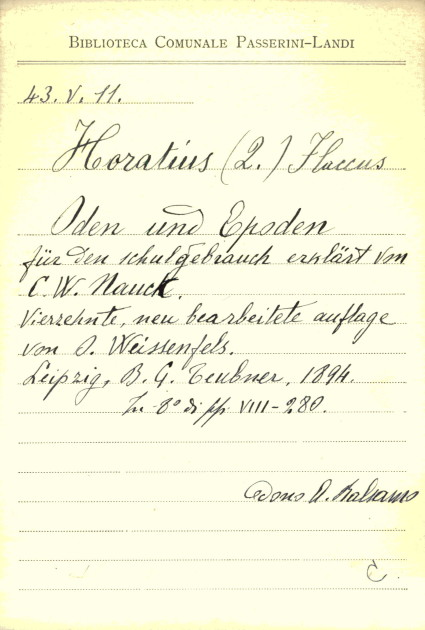 BIBLIOTECA COMUNALE PASSERINI-LANDI
43. V. 11.
Horatius (Q.) Flaccus
Oden und Epoden
für den schulgebrauch erklärt von
C. W. Nauck.
Vierzehnte, neu bearbeitete auflage
von O. Weissenfels.
Leipzig, B. G. Teubner, 1894.
In 8° di pp. VIII-280.
Dono A. Balsamo
C.